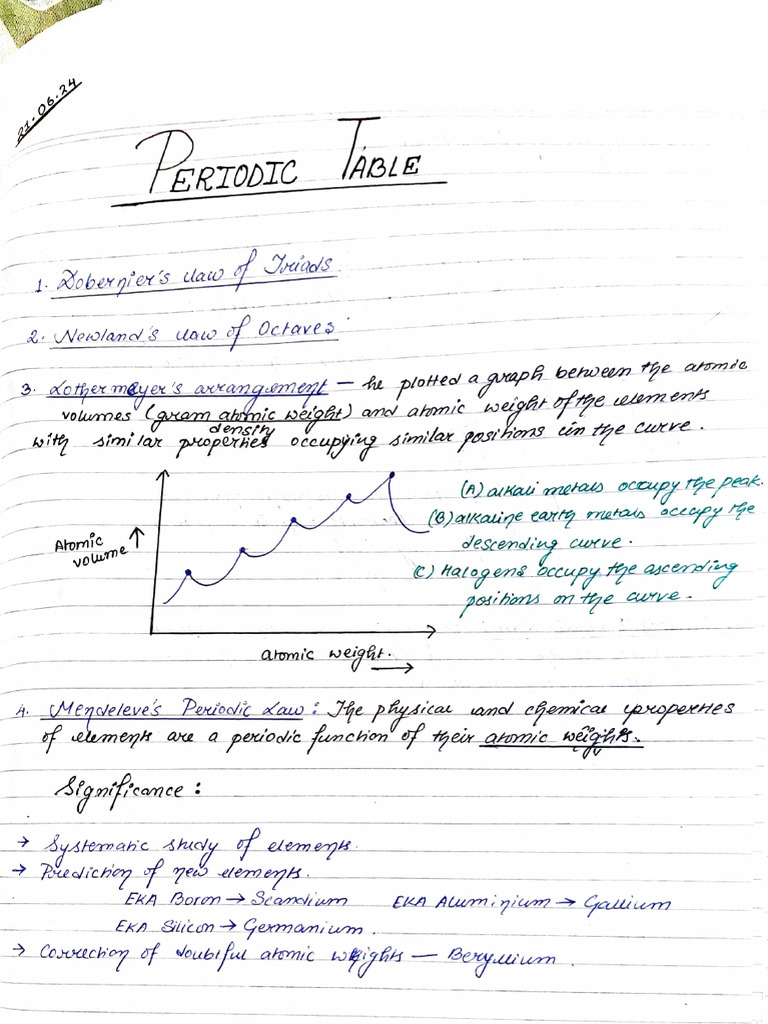 21.06.24
PERIODIC TABLE
1. Dobernier's Law of Triads.
2. Newland's Law of Octaves
3. Lothermeyer's arrangement — he plotted a graph between the atomic
volumes (gram atomic weight) and atomic weight of the elements
density
with similar properties occupying similar positions in the curve.
(A) alkali metals occupy the peak.
(B) alkaline earth metals occupy the
descending curve.
(C) Halogens occupy the ascending
positions on the curve.
Atomic
volume ↑
atomic weight. →
4. Mendeleve's Periodic Law : The physical and chemical properties
of elements are a periodic function of their atomic weights.
Significance :
→ Systematic study of elements.
→ Prediction of new elements.
EKA Boron → Scandium EKA Aluminium → Gallium
EKA Silicon → Germanium.
→ Correction of doubtful atomic weights — Beryllium.